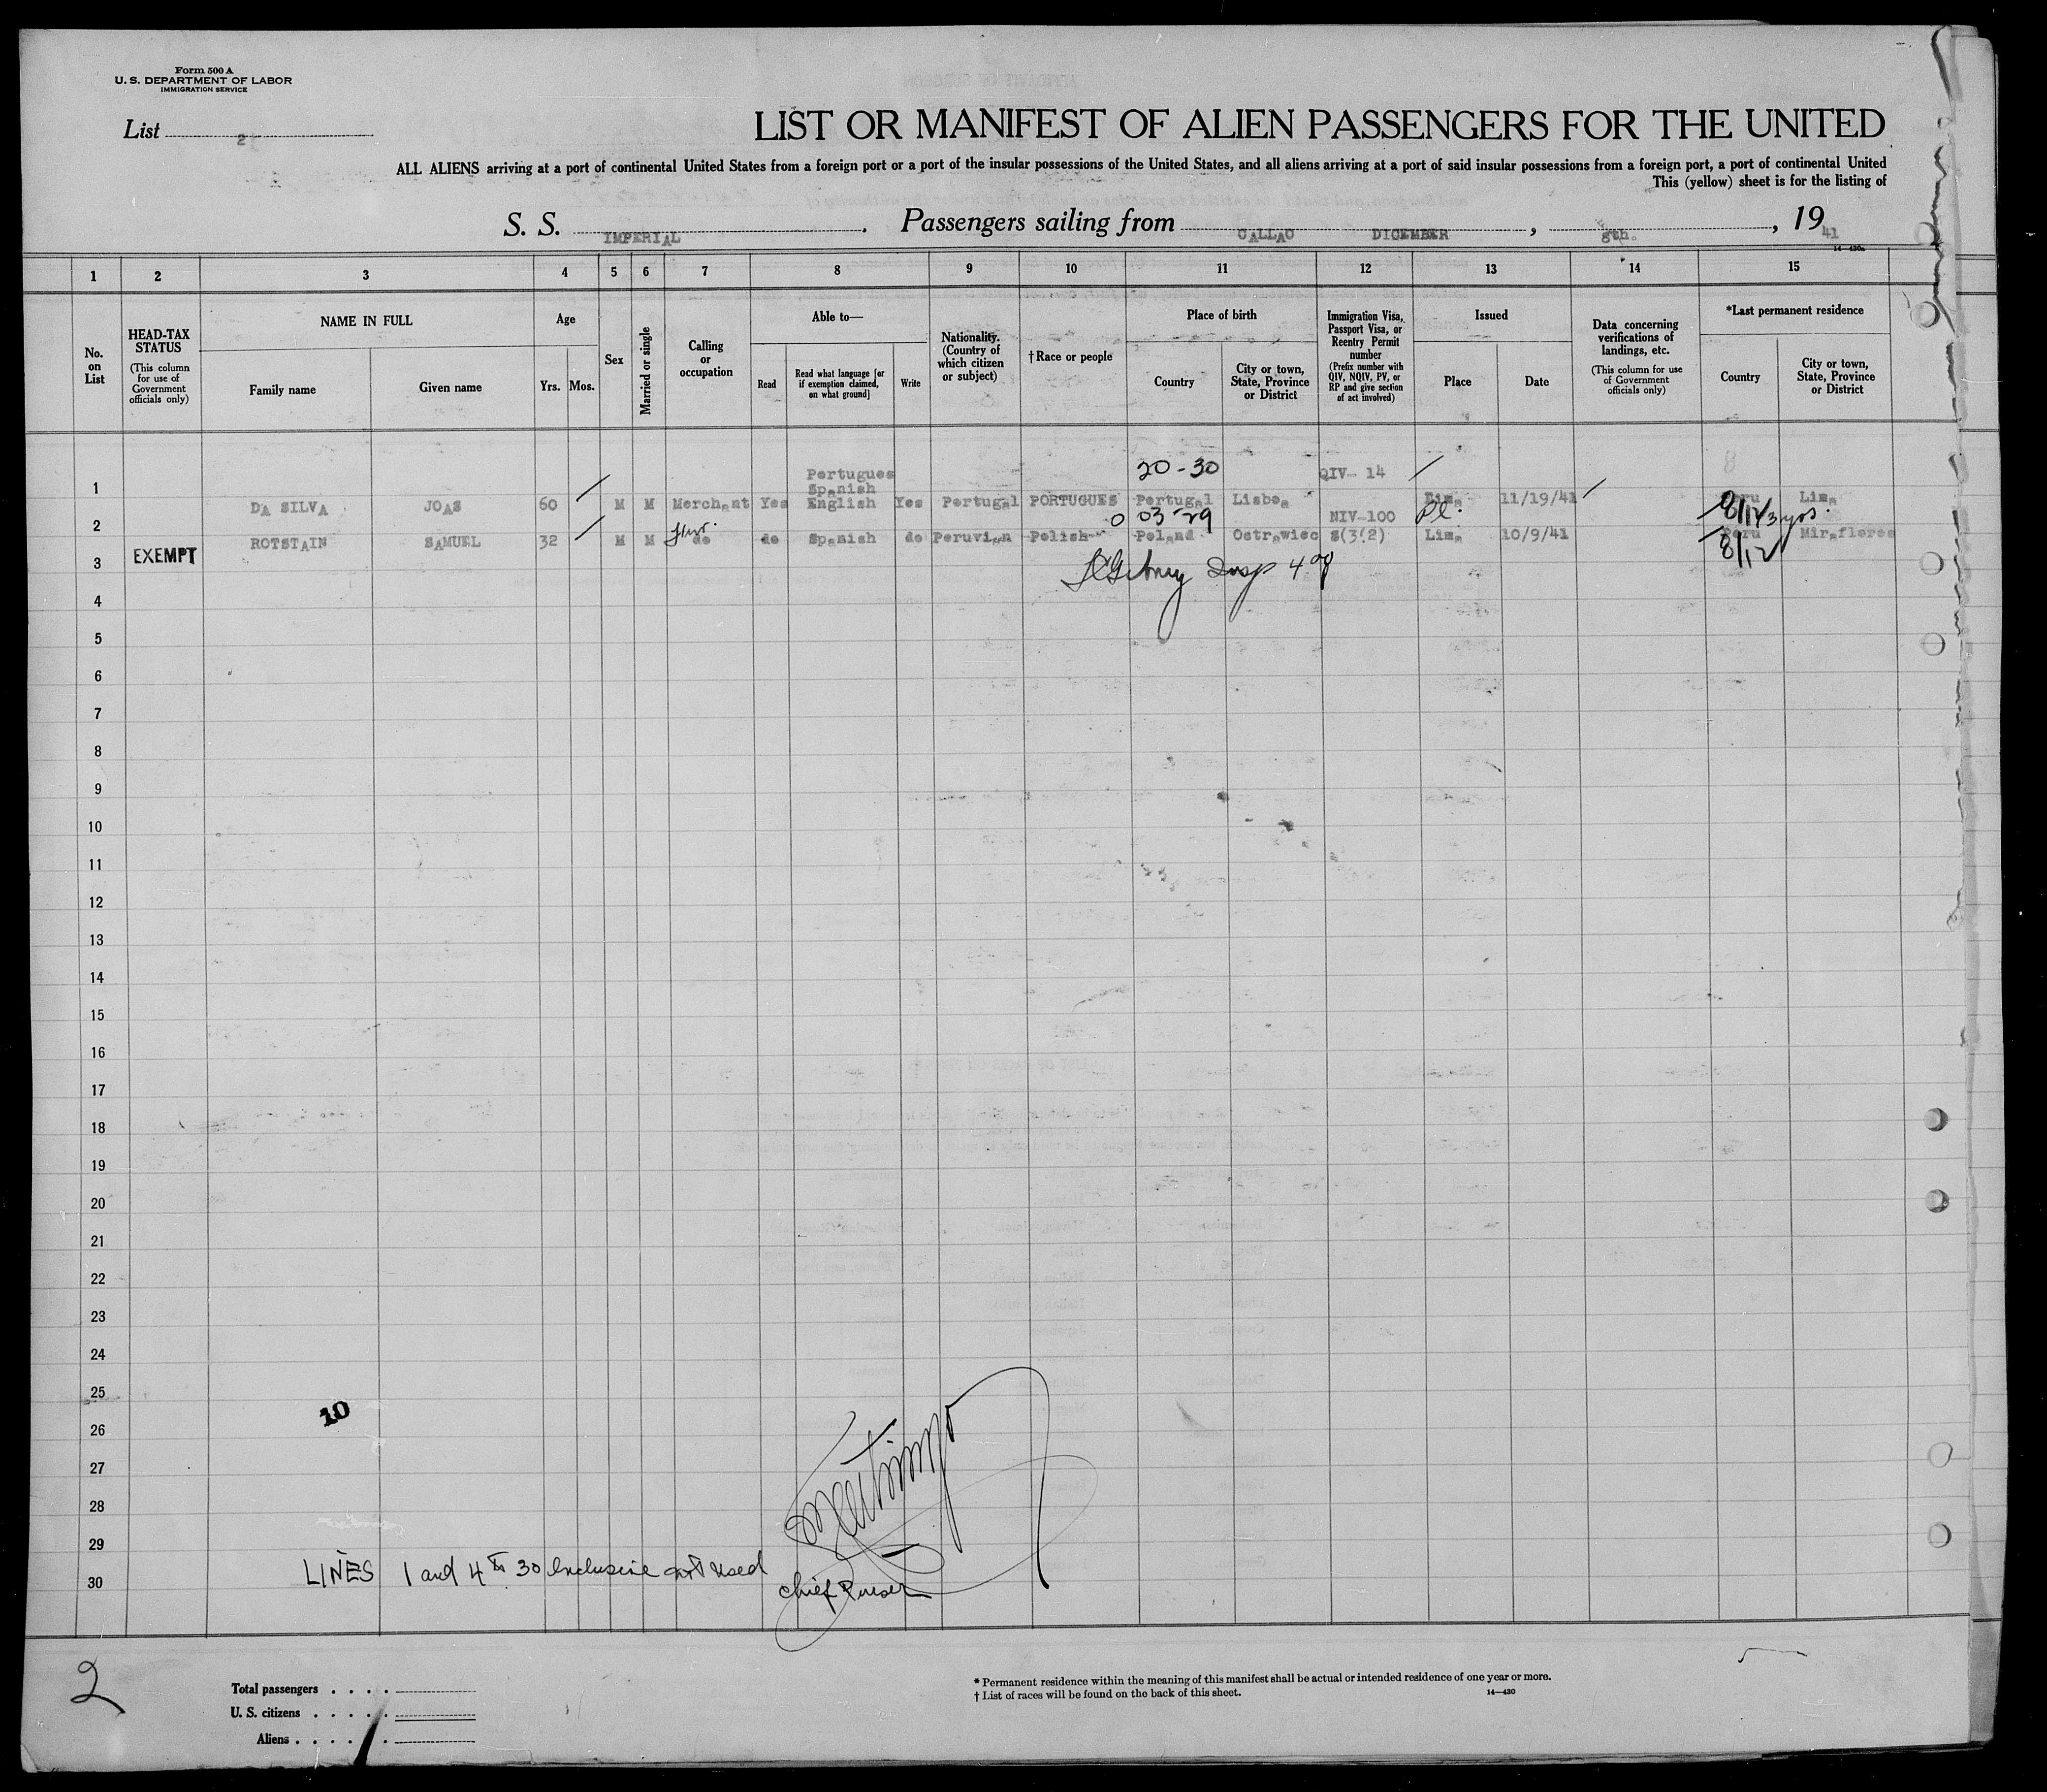 Form 500 A
U. S. DEPARTMENT OF LABOR
IMMIGRATION SERVICE
List 2
LIST OR MANIFEST OF ALIEN PASSENGERS FOR THE UNITED
ALL ALIENS arriving at a port of continental United States from a foreign port or a port of the insular possessions of the United States, and all aliens arriving at a port of said insular possessions from a foreign port, a port of continental United
This (yellow) sheet is for the listing of
S. S. IMPERIAL. Passengers sailing from CALLAO DICEMBER, 8th., 1941
14—430a
1 2 3 4 5 6 7 8 9 10 11 12 13 14 15
No. on List
HEAD-TAX STATUS
(This column for use of Government officials only)
NAME IN FULL
Family name
Given name
Age
Yrs. Mos.
Sex
Married or single
Calling or occupation
Able to—
Read
Read what language [or if exemption claimed, on what ground]
Write
Nationality. (Country of which citizen or subject)
†Race or people
Place of birth
Country
City or town, State, Province or District
Immigration Visa, Passport Visa, or Reentry Permit number
(Prefix number with QIV, NQIV, PV, or RP and give section of act involved)
Issued
Place
Date
Data concerning verifications of landings, etc.
(This column for use of Government officials only)
*Last permanent residence
Country
City or town, State, Province or District
20-30
Portugues
Spanish
QIV- 14
1
DA SILVA JOAS 60 M M Merchant Yes English Yes Portugal PORTUGUES Portugal Lisboa Lima 11/19/41 Peru Lima
8/12 3 yrs.
0 03-29
NIV-100
2
ROTSTAIN SAMUEL 32 M M do do Spanish do Peruvian Polish Poland Ostrawiec S(3(2) Lima 10/9/41 Peru Miraflores
8/12
EXEMPT
3
4
5
6
7
8
9
10
11
12
13
14
15
16
17
18
19
20
21
22
23
24
25
10
26
27
28
29
30
LINES 1 and 4 to 30 inclusive not used
Chief Purser
2
Total passengers
U. S. citizens
Aliens
* Permanent residence within the meaning of this manifest shall be actual or intended residence of one year or more.
† List of races will be found on the back of this sheet.
14—430